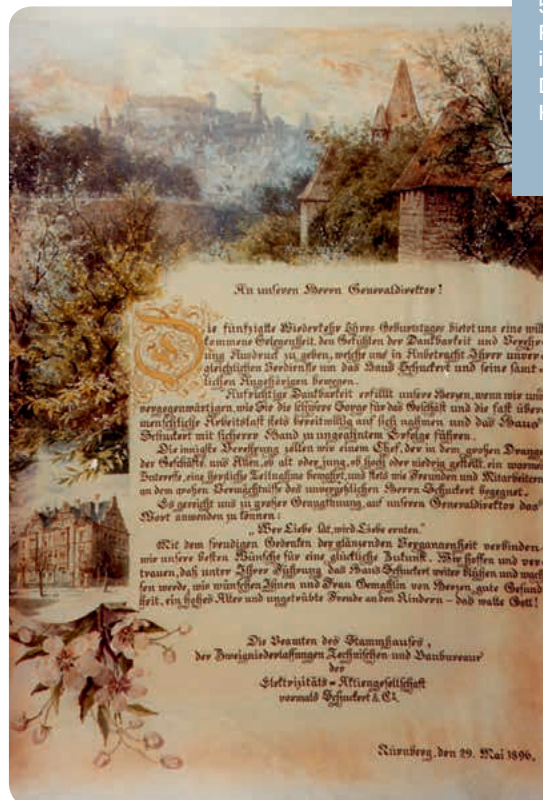 5
An unseren Herrn Generaldirektor!
Die fünfzigste Wiederkehr Ihres Geburtstages bietet uns eine will-
kommene Gelegenheit, den Gefühlen der Dankbarkeit und Verehr-
ung Ausdruck zu geben, welche uns in Anbetracht Ihrer unver-
gleichlichen Verdienste um das Haus Schuckert und seine sämt-
lichen Angehörigen bewegen.
Aufrichtige Dankbarkeit erfüllt unsere Herzen, wenn wir uns
vergegenwärtigen, wie Sie die schwere Sorge für das Geschäft und die fast über-
menschliche Arbeitslast stets bereitwillig auf sich nahmen und das Haus
Schuckert mit sicherer Hand zu ungeahntem Erfolge führten.
Die innigste Verehrung zollen wir einem Chef, der in dem großen Drange
der Geschäfte uns Allen, ob alt oder jung, ob hoch oder niedrig gestellt, ein warmes
Interesse, eine herzliche Teilnahme bewahrt, und stets wie Freunden und Mitarbeitern
an dem großen Vermächtnisse des unvergeßlichen Herrn Schuckert begegnet.
Es gereicht uns zu großer Genugthuung, auf unseren Generaldirektor das
Wort anwenden zu können:
„Wer Liebe sät, wird Liebe ernten."
Mit dem freudigen Gedenken der glänzenden Vergangenheit verbinden
wir unsere besten Wünsche für eine glückliche Zukunft. Wir hoffen und ver-
trauen, daß unter Ihrer Führung das Haus Schuckert weiter blühen und wach-
sen werde, wir wünschen Ihnen und Frau Gemahlin von Herzen gute Gesund-
heit, ein hohes Alter und ungetrübte Freude an den Kindern – das walte Gott!
Die Beamten des Stammhauses,
der Zweigniederlassungen Technischen und Baubureaux
der
Elektrizitäts-Aktiengesellschaft
vormals Schuckert & Co.
Nürnberg, den 29. Mai 1896.